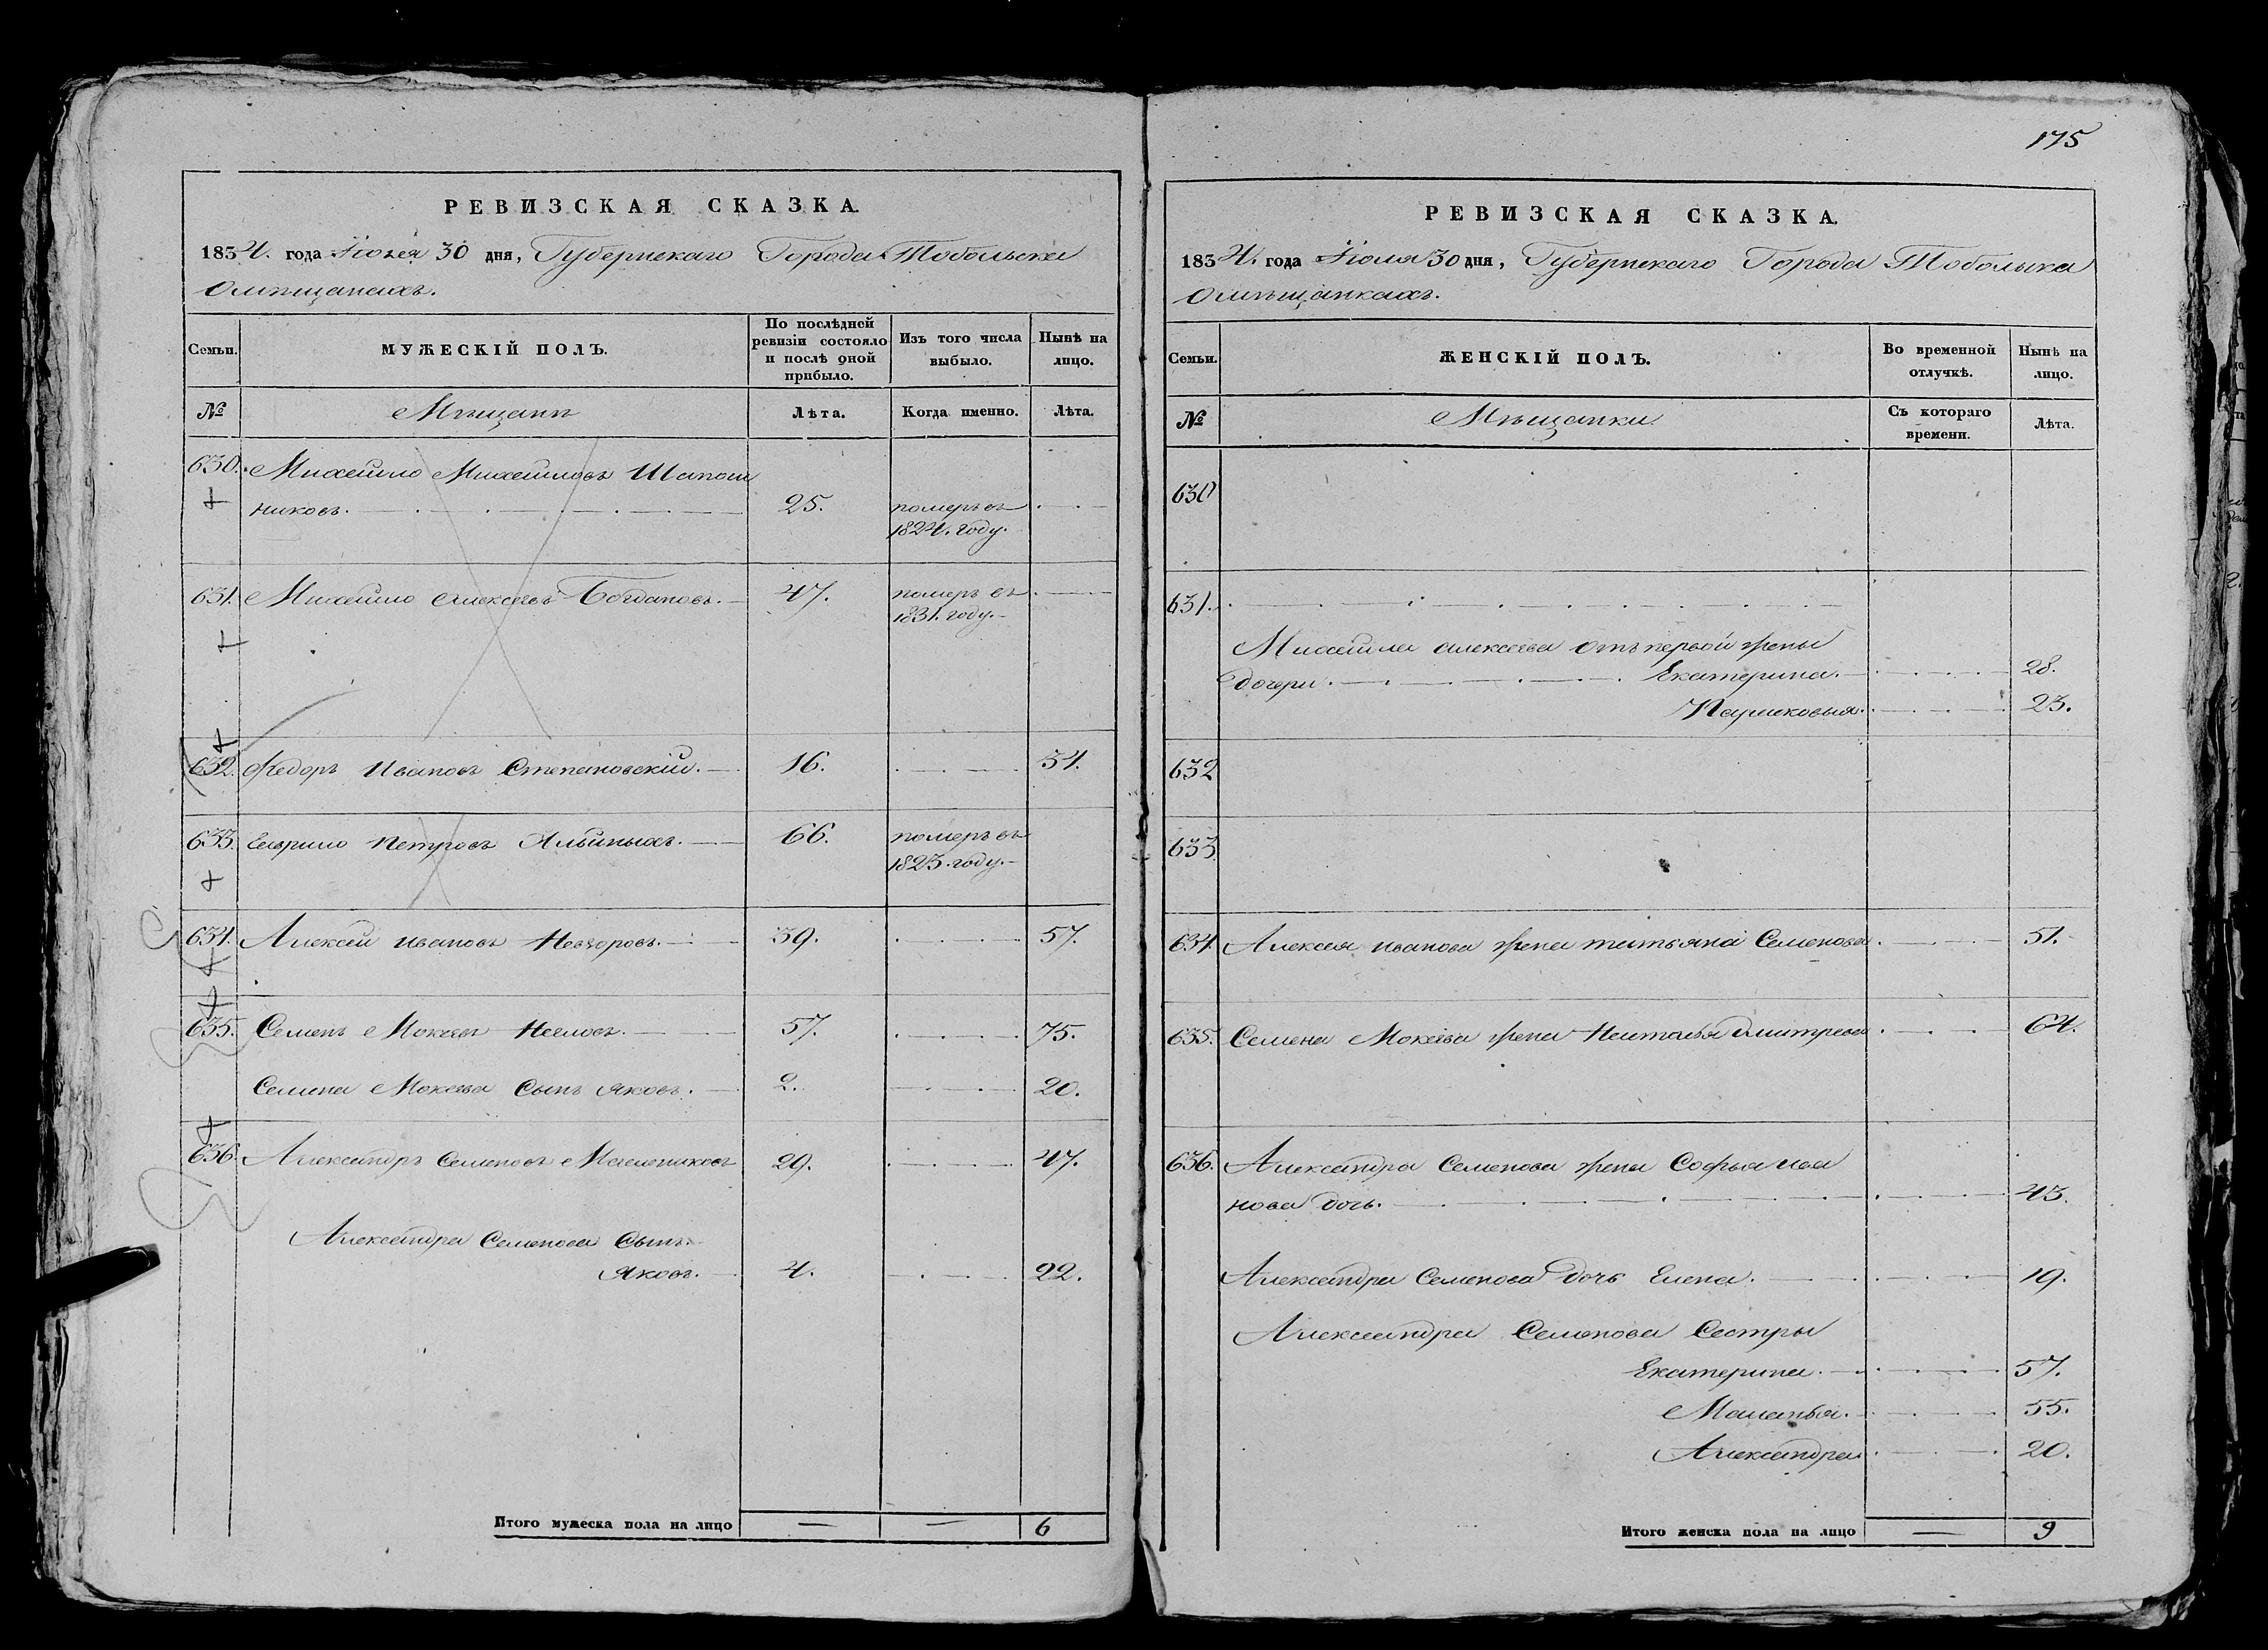 РЕВИЗСКАЯ СКАЗКА.
1834. года Июля 30 дня, Губернскаго Города Тобольска
О мѣщанахъ.
Семьи.
МУЖЕСКІЙ ПОЛЪ.
По послѣдней ревизіи состояло и послѣ оной прибыло.
Изъ того числа выбыло.
Нынѣ на лицо.
№
Мѣщанъ
Лѣта.
Когда именно.
Лѣта.
630. Михайло Михайловъ Шапош
никовъ. 25. померъ въ
1824. году.
631. Михайло Алексѣевъ Богдановъ. 47. померъ въ
1831. году.
632. Федоръ Ивановъ Степановскій. 16. 34.
633. Гаврило Петровъ 66. померъ въ
1823. году.
634. Алексѣй Ивановъ Невзоровъ. 39. 57.
635. Семенъ Мокѣевъ 57. 75.
Семена Мокѣева сынъ Яковъ. 2. 20.
636. Александръ Семеновъ Маслениковъ 29. 47.
Александра Семенова сынъ
Яковъ. 4. 22.
Итого мужеска пола на лицо — — 6
175
РЕВИЗСКАЯ СКАЗКА.
1834. года Июля 30 дня, Губернскаго Города Тобольска
О мѣщанкахъ.
Семьи.
ЖЕНСКІЙ ПОЛЪ.
Во временной отлучкѣ.
Нынѣ на лицо.
№
Мѣщанки
Съ котораго времени.
Лѣта.
630
631.
Михайла Алексѣева отъ первой жены
дочери. Екатерина. 28.
Парасковья. 23.
632
633
634. Алексѣя Иванова жена Татьяна Семенова 51.
635. Семена Мокѣева жена Наталья Дмитрева 64.
636. Александра Семенова жена Софья Ива
нова дочь. 43.
Александра Семенова дочь Елена. 19.
Александра Семенова сестры
Екатерина. 57.
Маланья. 55.
Александра 20.
Итого женска пола на лицо — 9